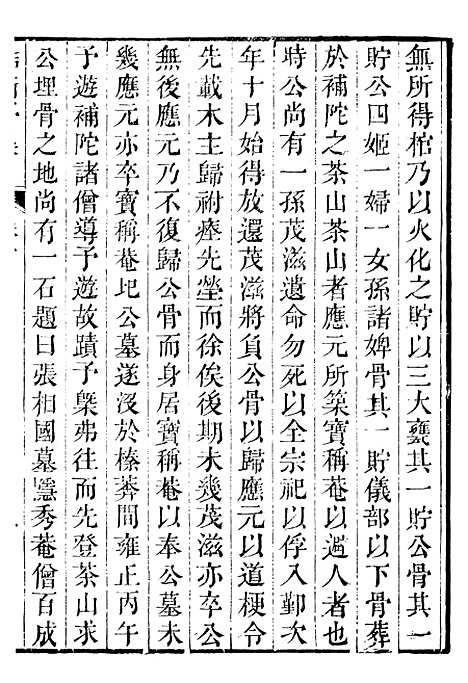 無所得棺乃以火化之貯以三大甕其一貯公骨其一
貯公四姬一婦一女孫諸婢骨其一貯儀部以下骨葬
於補陀之茶山茶山者應元所築寶稱菴以遇人者也
時公尚有一孫茂滋遺命勿死以全宗祀以俘入鄞次
年十月始得放還茂滋將負公骨以歸應元以道梗令
先載木主歸祔瘞先塋而徐俟後期未幾茂滋亦卒公
無後應元乃不復歸公骨而身居寶稱菴以奉公墓未
幾應元亦卒寶稱菴圯公墓遂沒於榛莽間雍正丙午
予遊補陀諸僧導予遊故蹟予槩弗往而先登茶山求
公埋骨之地尚有一石題曰張相國墓隱秀菴僧百成